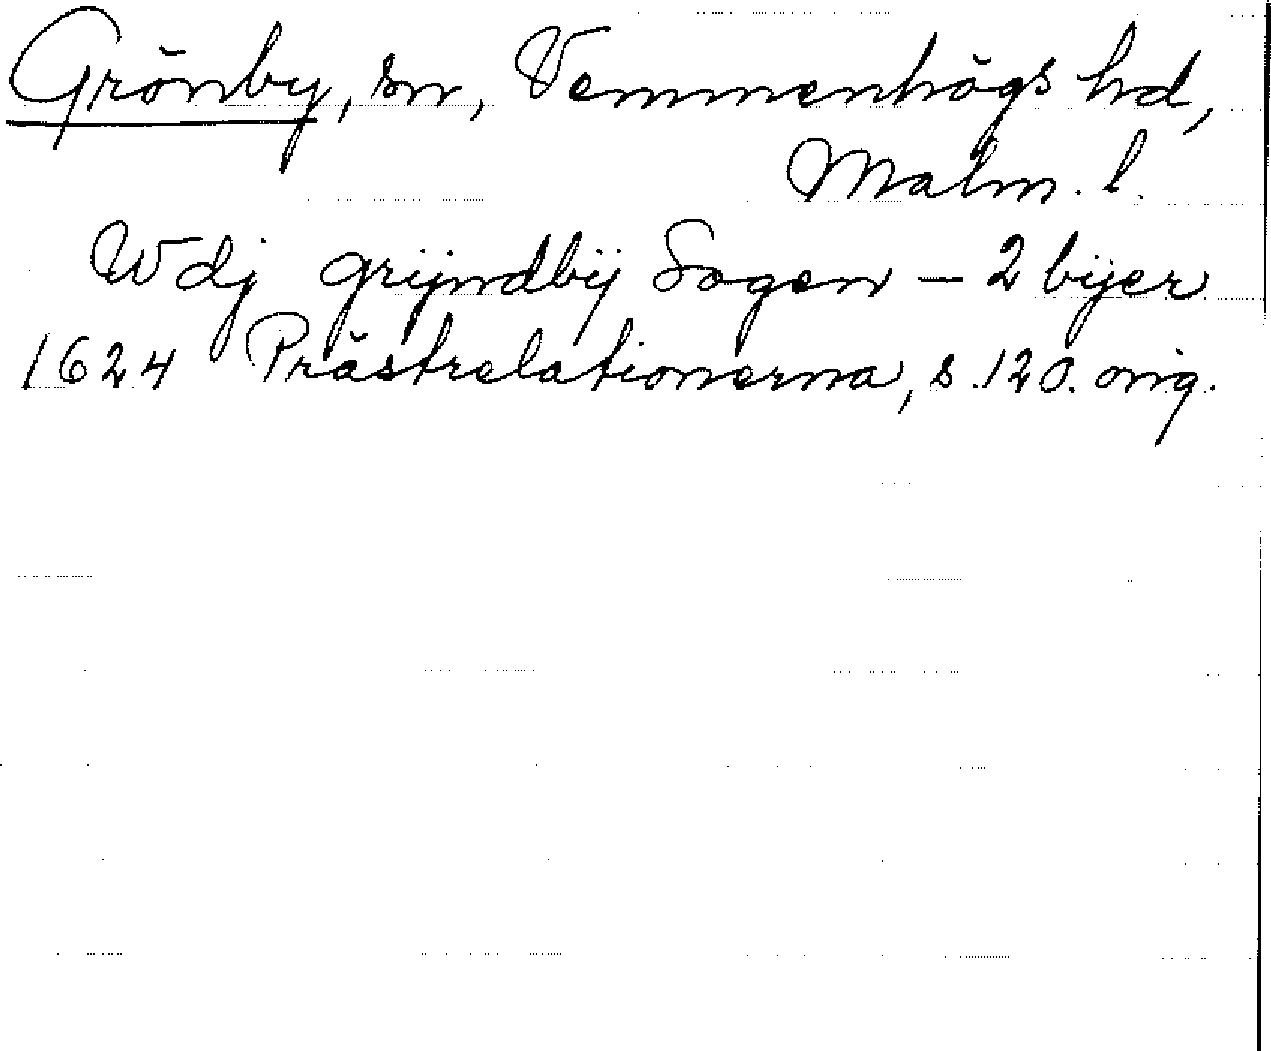 Grönby, sn, Vemmenhögs hd,
Malm. l.
Wdj grijndbij Sogen – 2 bijer
1624 Prästrelationerna, s. 120. orig.